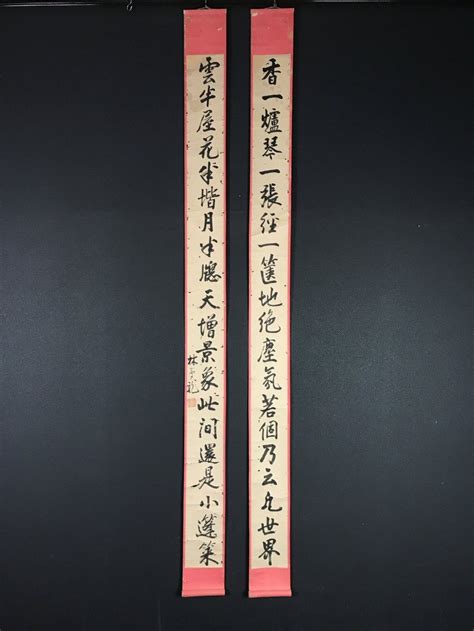 香一爐琴一張經一篋地絕塵氛若個乃云凡世界
雲半屋花半堦月半牕天增景象此間還是小蓬萊
林